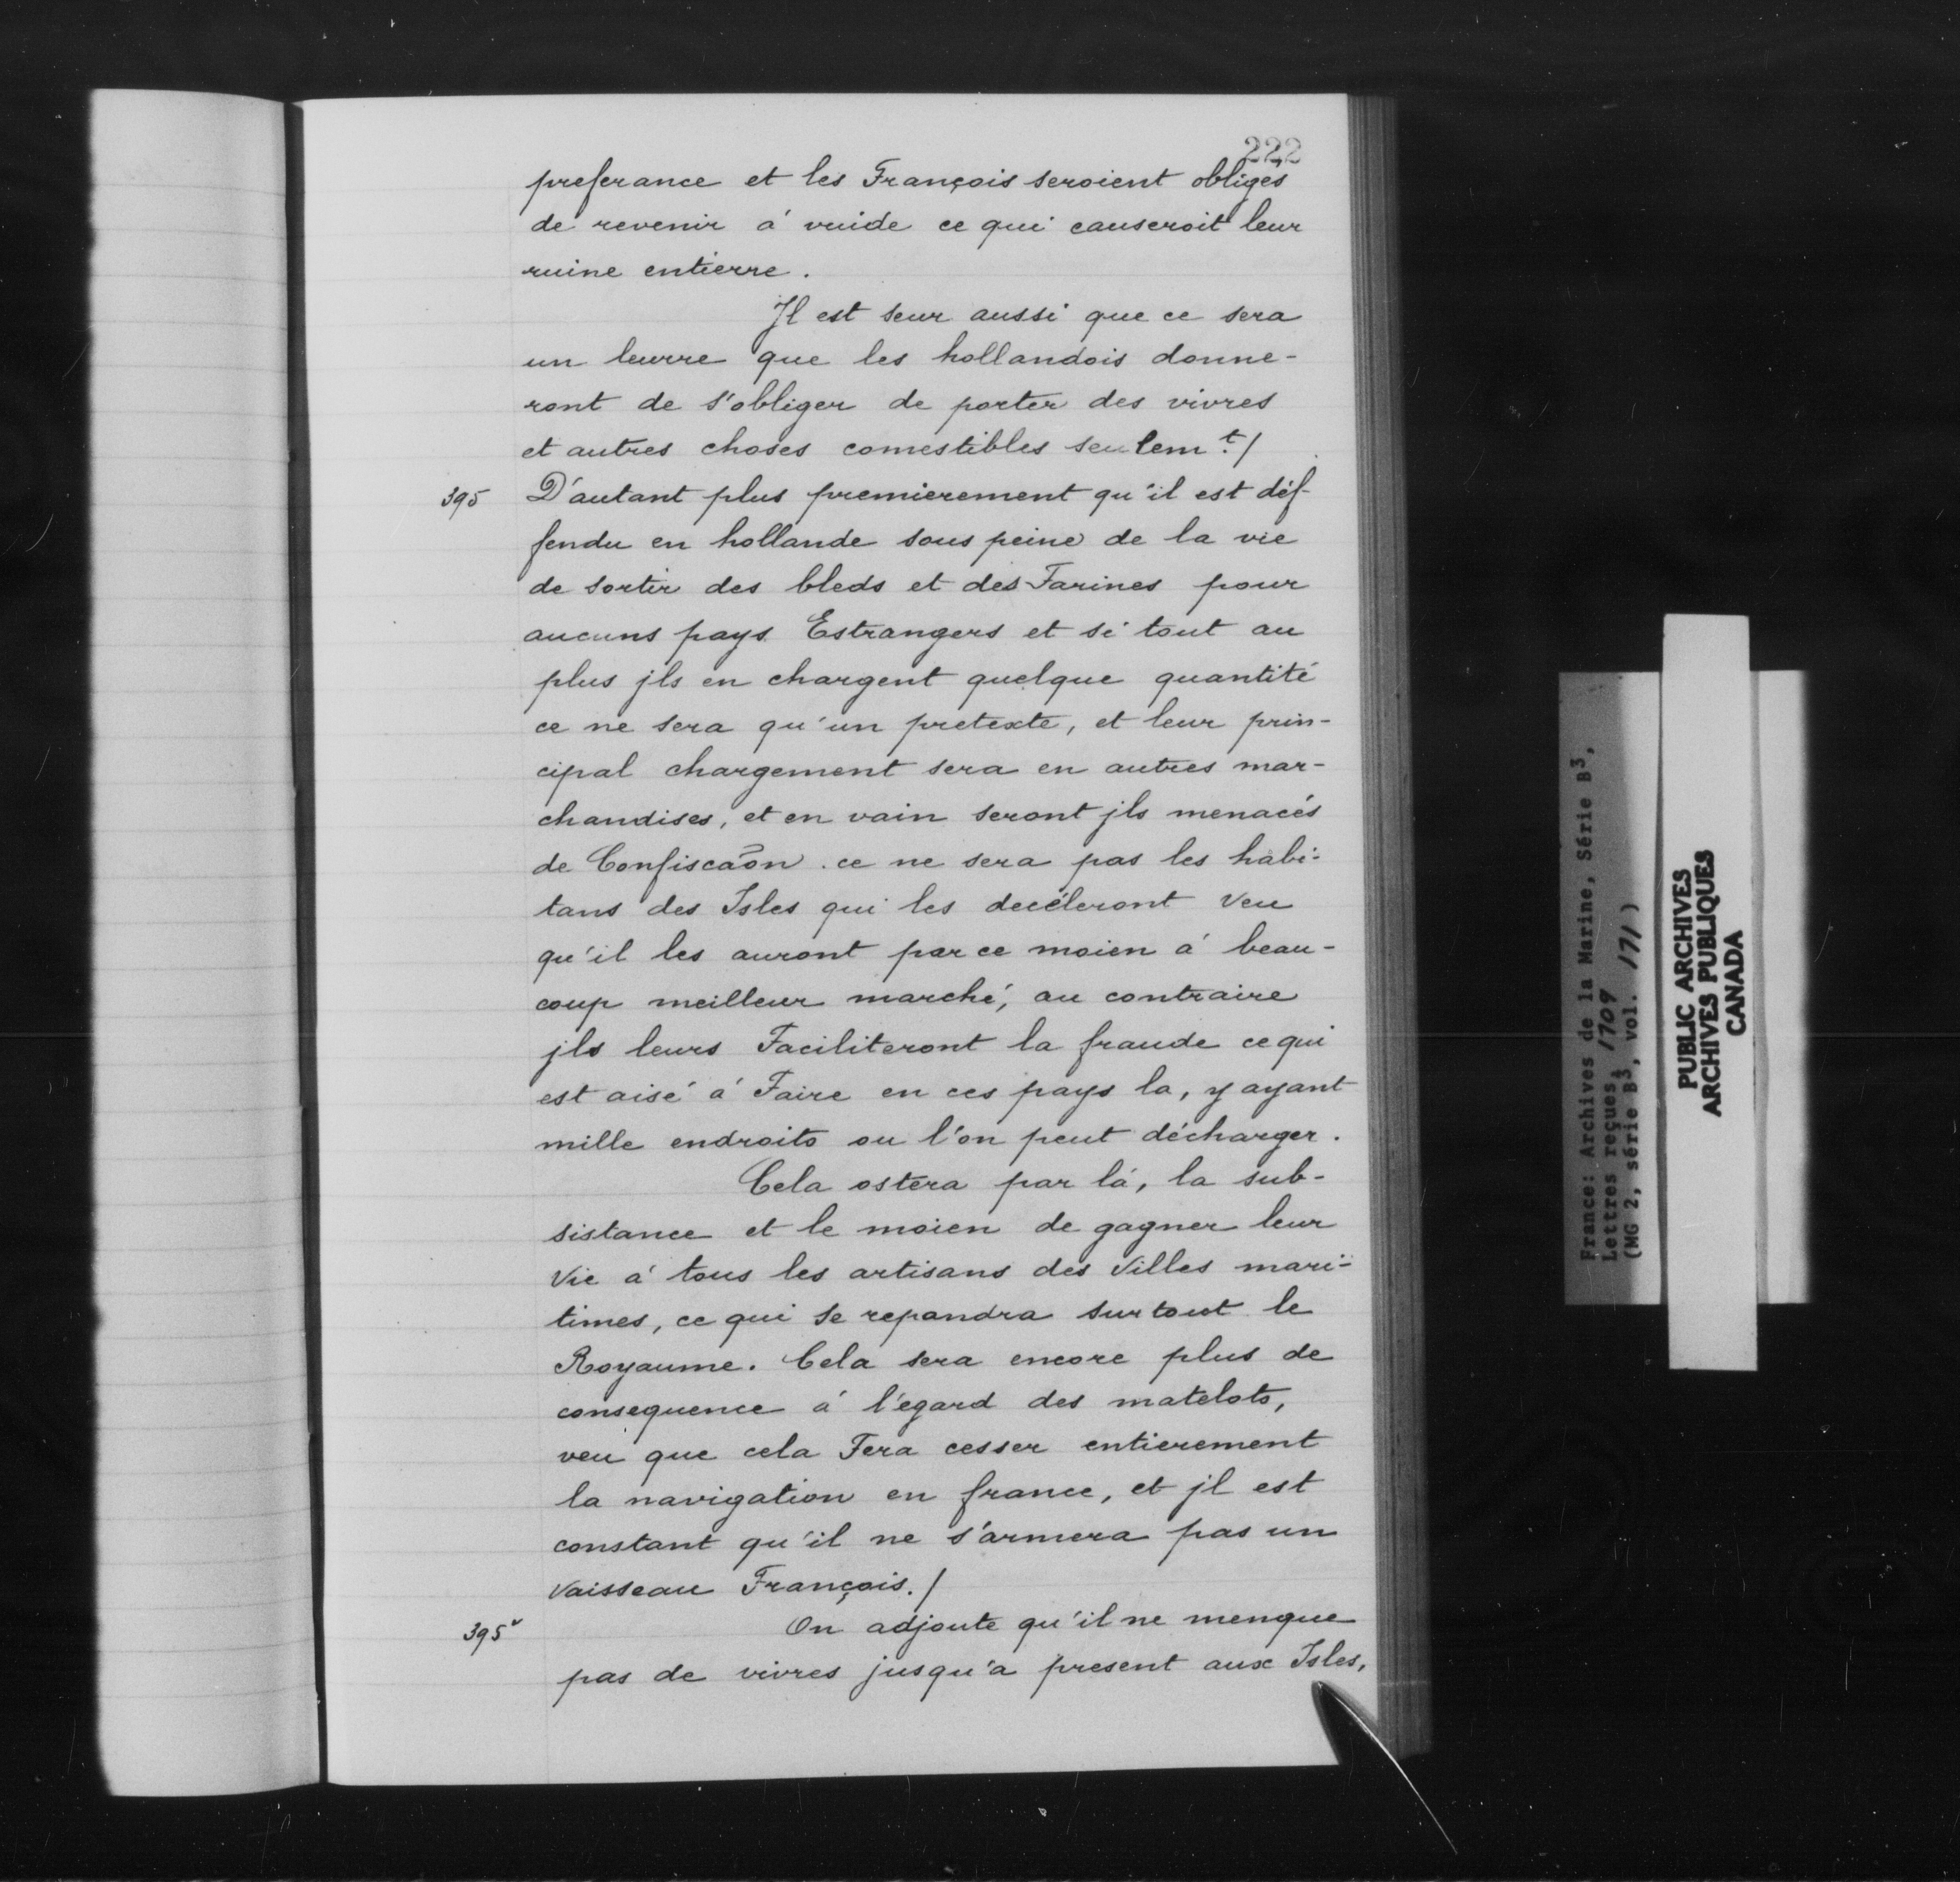 222
preferance et les François seroient obligés
de revenir á vuide ce qui causeroit leur
ruine entierre.
Jl est seur aussi que ce sera
un leurre que les hollandois donne-
ront de s'obliger de porter des vivres
et autres choses comestibles seulem.t/
395 D'autant plus premierement qu'il est déf-
fendu en hollande sous peine de la vie
de sortir des bleds et des Farines pour
aucuns pays Estrangers et si tout au
plus jls en chargent quelque quantité
ce ne sera qu'un pretexte, et leur prin-
cipal chargement sera en autres mar-
chandises, et en vain seront jls menacés
de Confiscaõn. ce ne sera pas les habi-
tans des Isles qui les decéleront veu
qu'il les auront par ce moien á beau-
coup meilleur marché, au contraire
jls leurs Faciliteront la fraude ce qui
est aisé á Faire en ces pays la, y ayant
mille endroits ou l'on peut décharger.
Cela ostera par lá, la sub-
sistance et le moien de gagner leur
Vie á tous les artisans des Villes mari-
times, ce qui se repandra sur tout le
Royaume. Cela sera encore plus de
consequence á l'égard des matelots,
veu que cela Fera cesser entierement
la navigation en france, et jl est
constant qu'il ne s'armera pas un
Vaisseau François./
395v On adjoute qu'il ne menque
pas de vivres jusqu'a present aux Isles,
France: Archives de la Marine, Série B3,
Lettres reçues, 1709
(MG 2, série B3, vol. 171)
PUBLIC ARCHIVES
ARCHIVES PUBLIQUES
CANADA